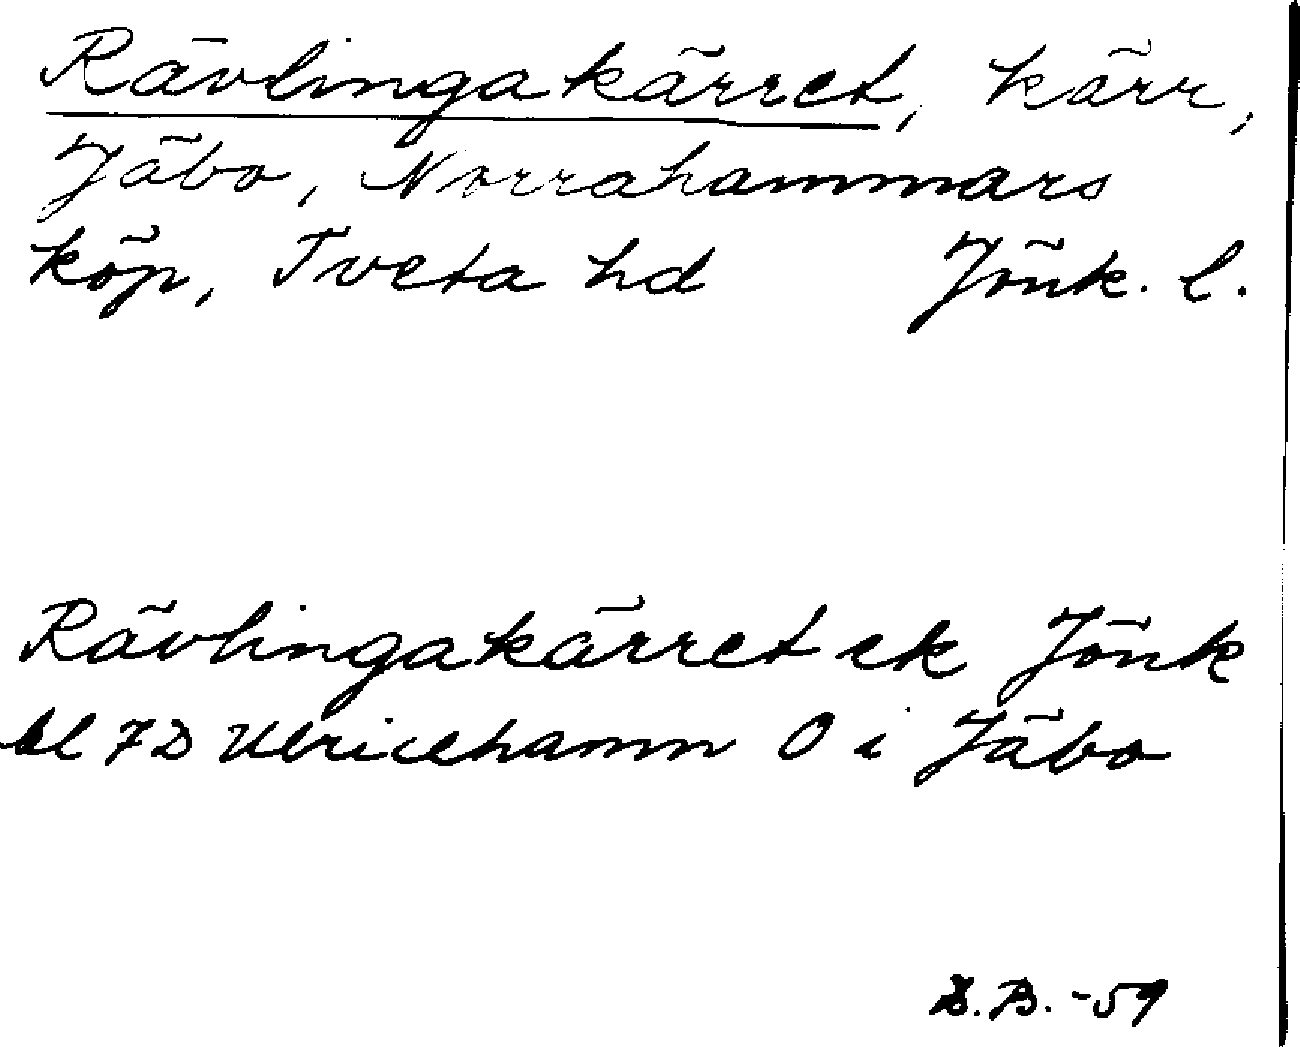 Rävlingakärret, kärr,
Jäbo, Norrahammars
köp, Tveta hd Jönk. l.
Rävlingakärret ek Jönk
bl 7D Ulricehamn O i Jäbo
B. -59